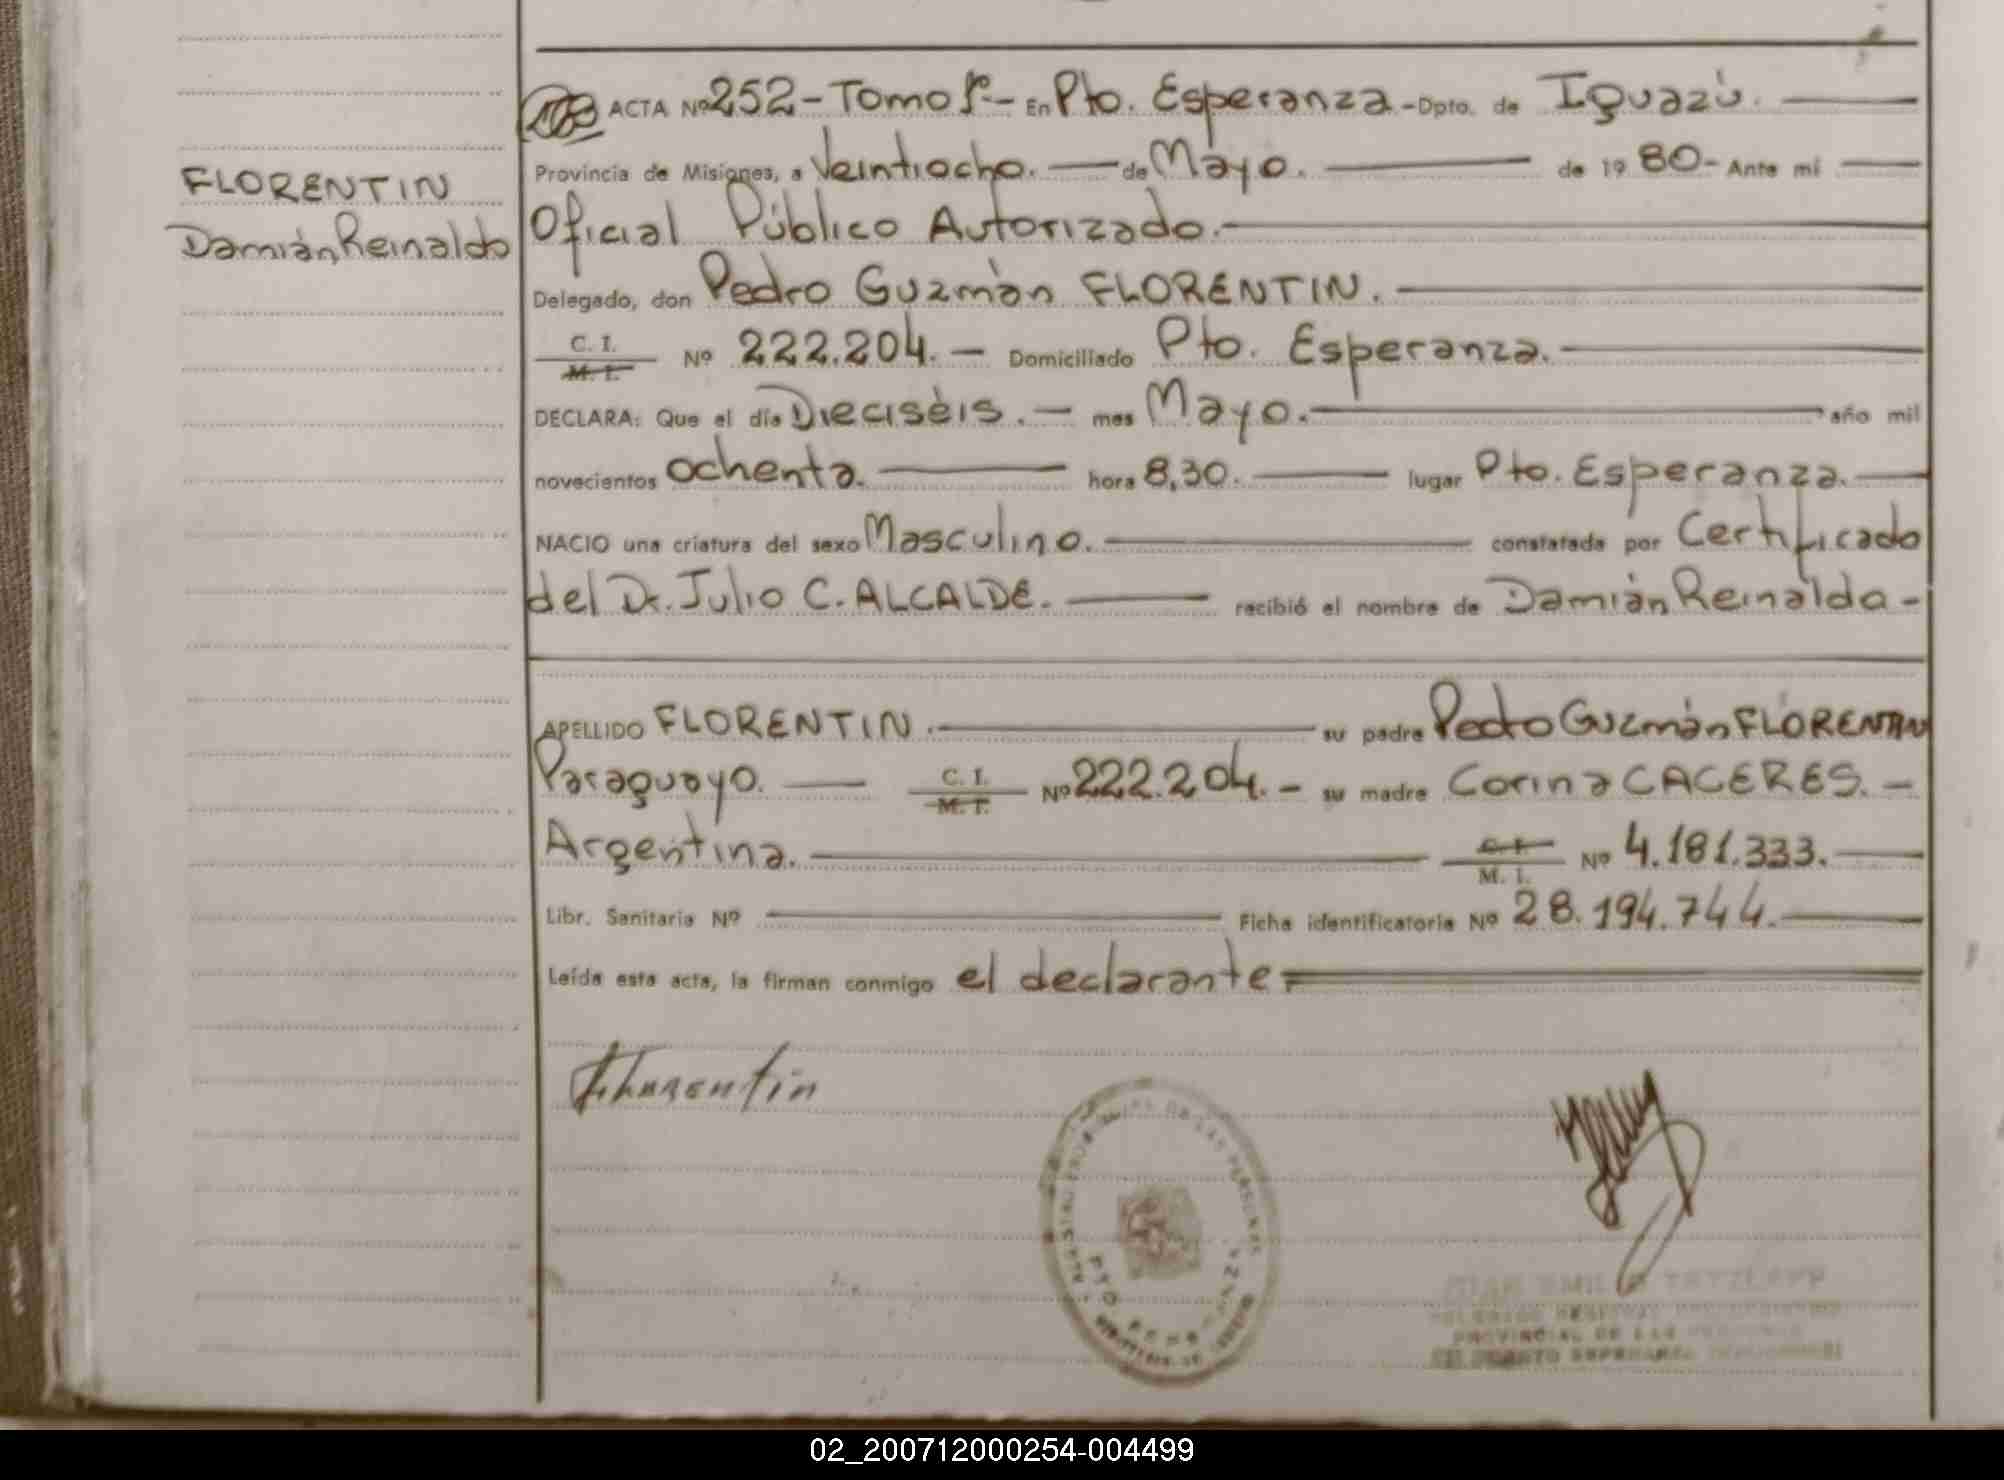 ACTA Nº 252 - Tomo 1º - En Pto. Esperanza - Dpto. de Iguazú.
Provincia de Misiones, a Veintiocho. de Mayo. de 19 80 - Ante mí
Oficial Público Autorizado.
FLORENTIN
Damián Reinaldo
Delegado, don Pedro Guzmán FLORENTIN.
C. I.
M. I.
Nº 222.204. - Domiciliado Pto. Esperanza.
DECLARA: Que el día Dieciséis. - mes Mayo. año mil
novecientos ochenta. hora 8,30. lugar Pto. Esperanza.
NACIO una criatura del sexo Masculino. constatada por Certificado
del Dr. Julio C. ALCALDE. recibió el nombre de Damián Reinaldo -
APELLIDO FLORENTIN. su padre Pedro Guzmán FLORENTIN
Paraguayo. C. I. M. I. Nº 222.204. - su madre Corina CACERES. -
Argentina. C. I. M. I. Nº 4.181.333.
Libr. Sanitaria Nº Ficha identificatoria Nº 28.194.744.
Leída esta acta, la firman conmigo el declarante
Florentin
PTO
PROVINCIAL DE LAS
02_200712000254-004499